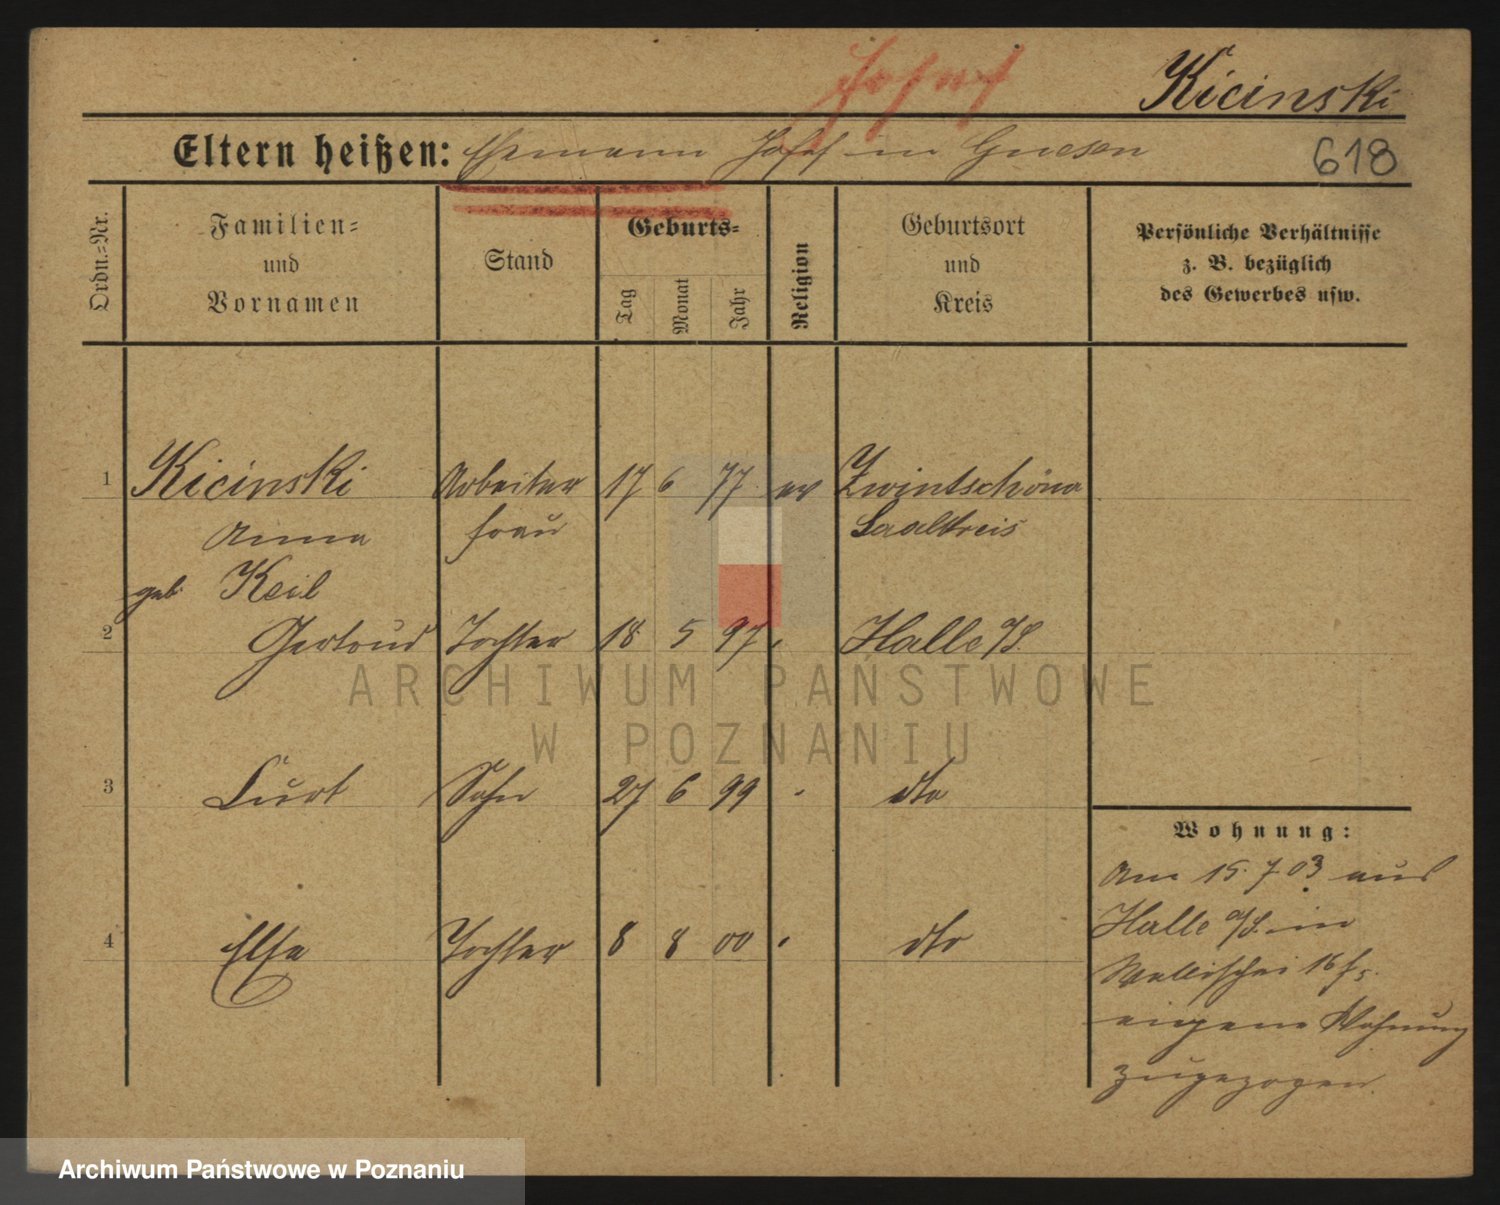 Josef
Kicinski
Eltern heißen: Ehemann Josef in Gnesen
618
Ordn.-Nr.
Familien-
und
Vornamen
Stand
Geburts-
Tag
Monat
Jahr
Religion
Geburtsort
und
Kreis
Persönliche Verhältnisse
z. B. bezüglich
des Gewerbes usw.
1 Kicinski Arbeiter 17 6 77 ev Zwintschöna
Anna frau Saalkreis
geb. Keil
2 Gertrud Tochter 18 5 97 " Halle a/S.
ARCHIWUM PAŃSTWOWE
W POZNANIU
3 Curt Sohn 27 6 99 " dto
Wohnung:
Am 15.7.03 aus
4 Elsa Tochter 8 8 00 " dto
Halle a/S. in
Wallischei 16
eigene Wohnung
zugezogen.
Archiwum Państwowe w Poznaniu